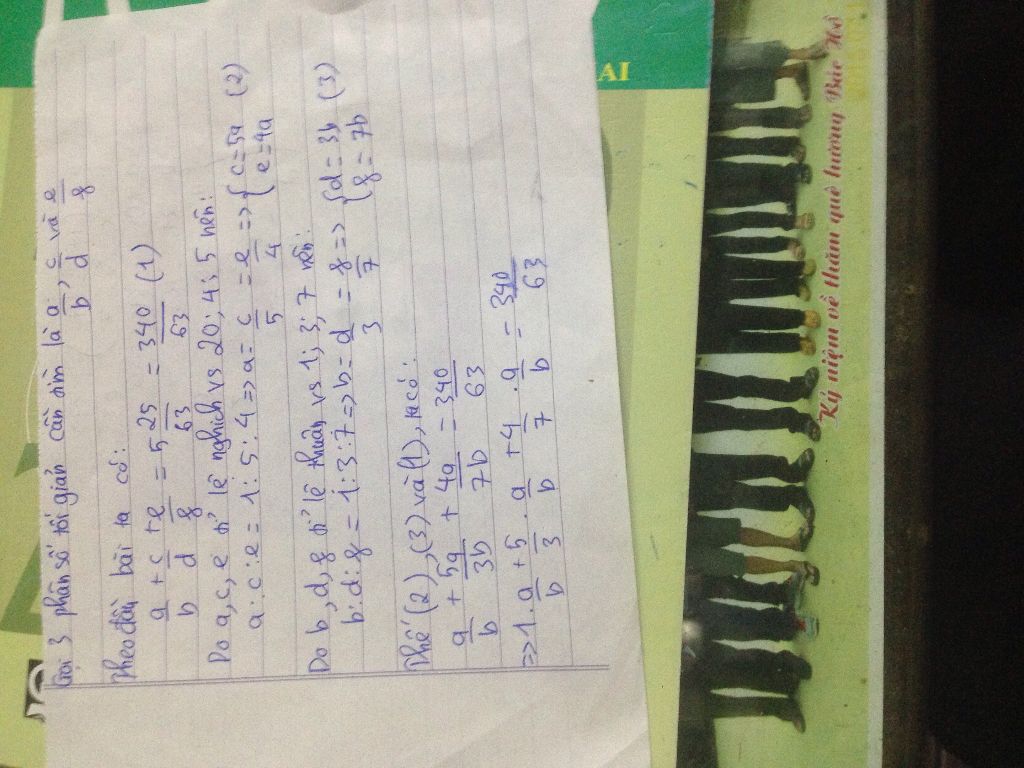 Gọi 3 phân số tối giản cần tìm là a/b, c/d và e/g
Theo đầu bài ta có:
a/b + c/d + e/g = 5 25/63 = 340/63 (1)
Do a, c, e tỉ lệ nghịch vs 20; 4; 5 nên:
a:c:e = 1:5:4 => a = c/5 = e/4 => { c=5a e=4a (2)
Do b, d, g tỉ lệ thuận vs 1; 3; 7 nên:
b:d:g = 1:3:7 => b = d/3 = g/7 => { d=3b g=7b (3)
Thế (2), (3) và (1), ta có:
a/b + 5a/3b + 4a/7b = 340/63
=> 1.a/b + 5/3.a/b + 4/7.a/b = 340/63
AI
Kỷ niệm về thăm quê hương Bác Hồ